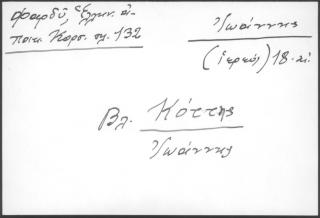 Φαρδύ, Ἑλλην. ἀ-
ποικ. Κορσ. σελ. 132
Ἰωάννης
(ἱερεύς) 18. αἰ.
Βλ. Κόττης
Ἰωάννης